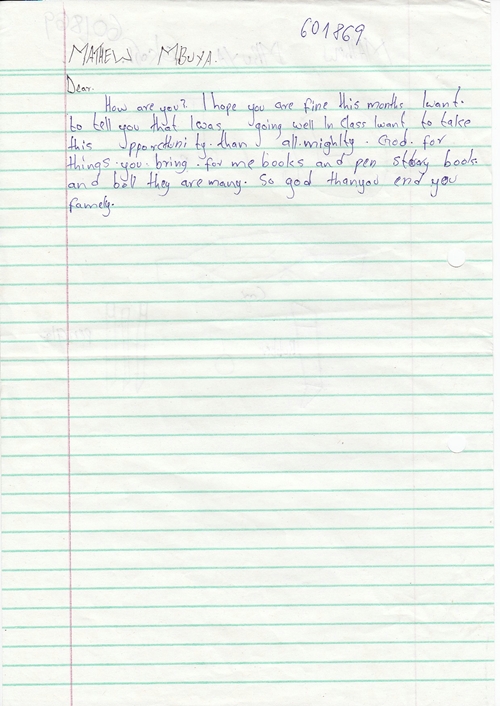 601869
MATHEW MBUYA.
Dear.
How are you? I hope you are fine this months I want.
to tell you that I was, going well In class I want to take
this opporctunity. than all.mighlty. God. for
things.you.bring.for me books and pen story book
and boll they are many. So god thanyou end you
famely.